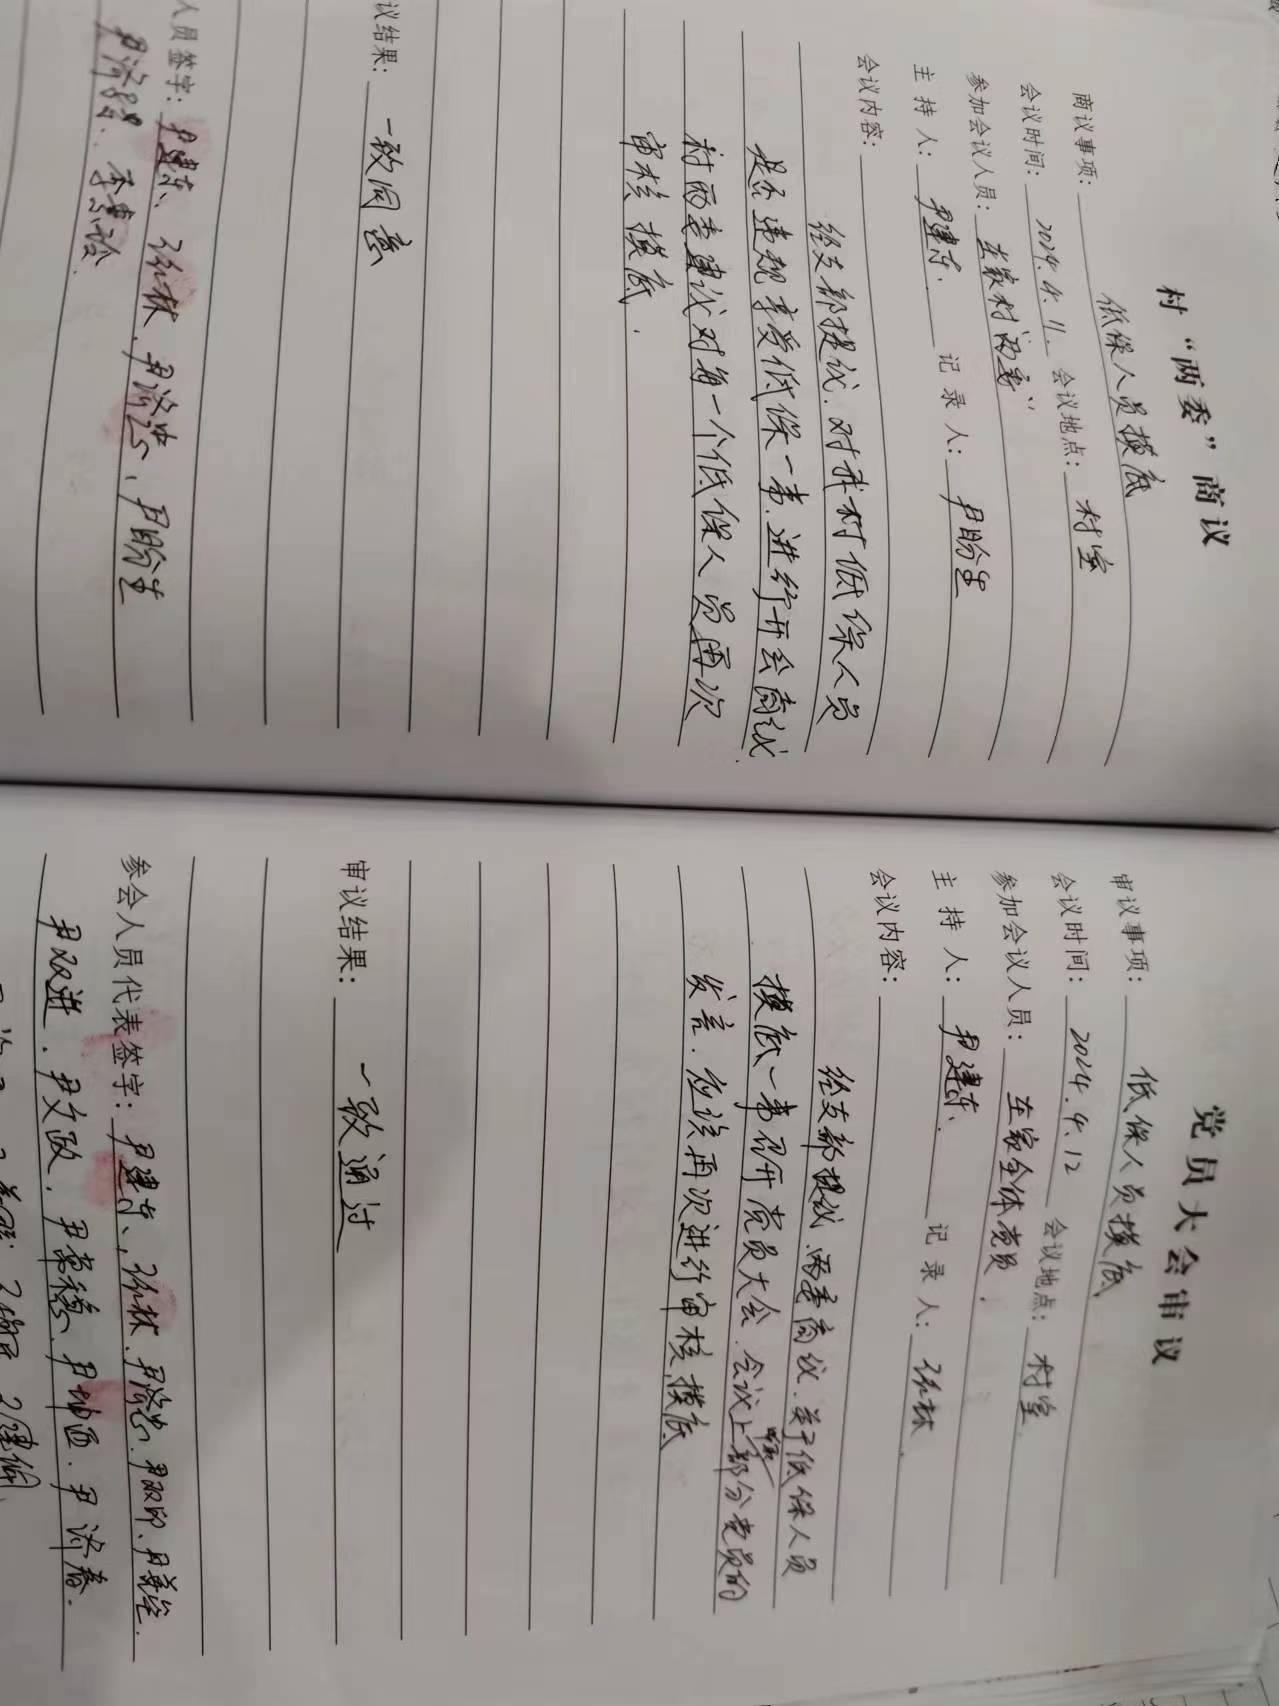 村“两委”商议
商议事项: 低保人员摸底
会议时间: 2024.4.11. 会议地点: 村室
参加会议人员: 左家村“两委”
主持人: 尹建东、 记录人: 尹盼生
会议内容:
经支部提议.对我村低保人员
是否违规享受低保一事.进行开会商议.
村两委建议对每一个低保人员再次
审核摸底.
议结果: 一致同意
人员签字: 尹建东、 张林.
党员大会审议
审议事项: 低保人员摸底
会议时间: 2024.4.12 会议地点: 村室.
参加会议人员: 左家全体党员.
主持人: 尹建东、 记录人: 张林.
会议内容:
经支部提议.两委商议.关于低保人员
摸底一事召开党员大会.会议上听取部分党员的
发言.应该再次进行审核.摸底
审议结果: 一致通过
参会人员代表签字: 尹建东、张林.
尹双进.尹文政.